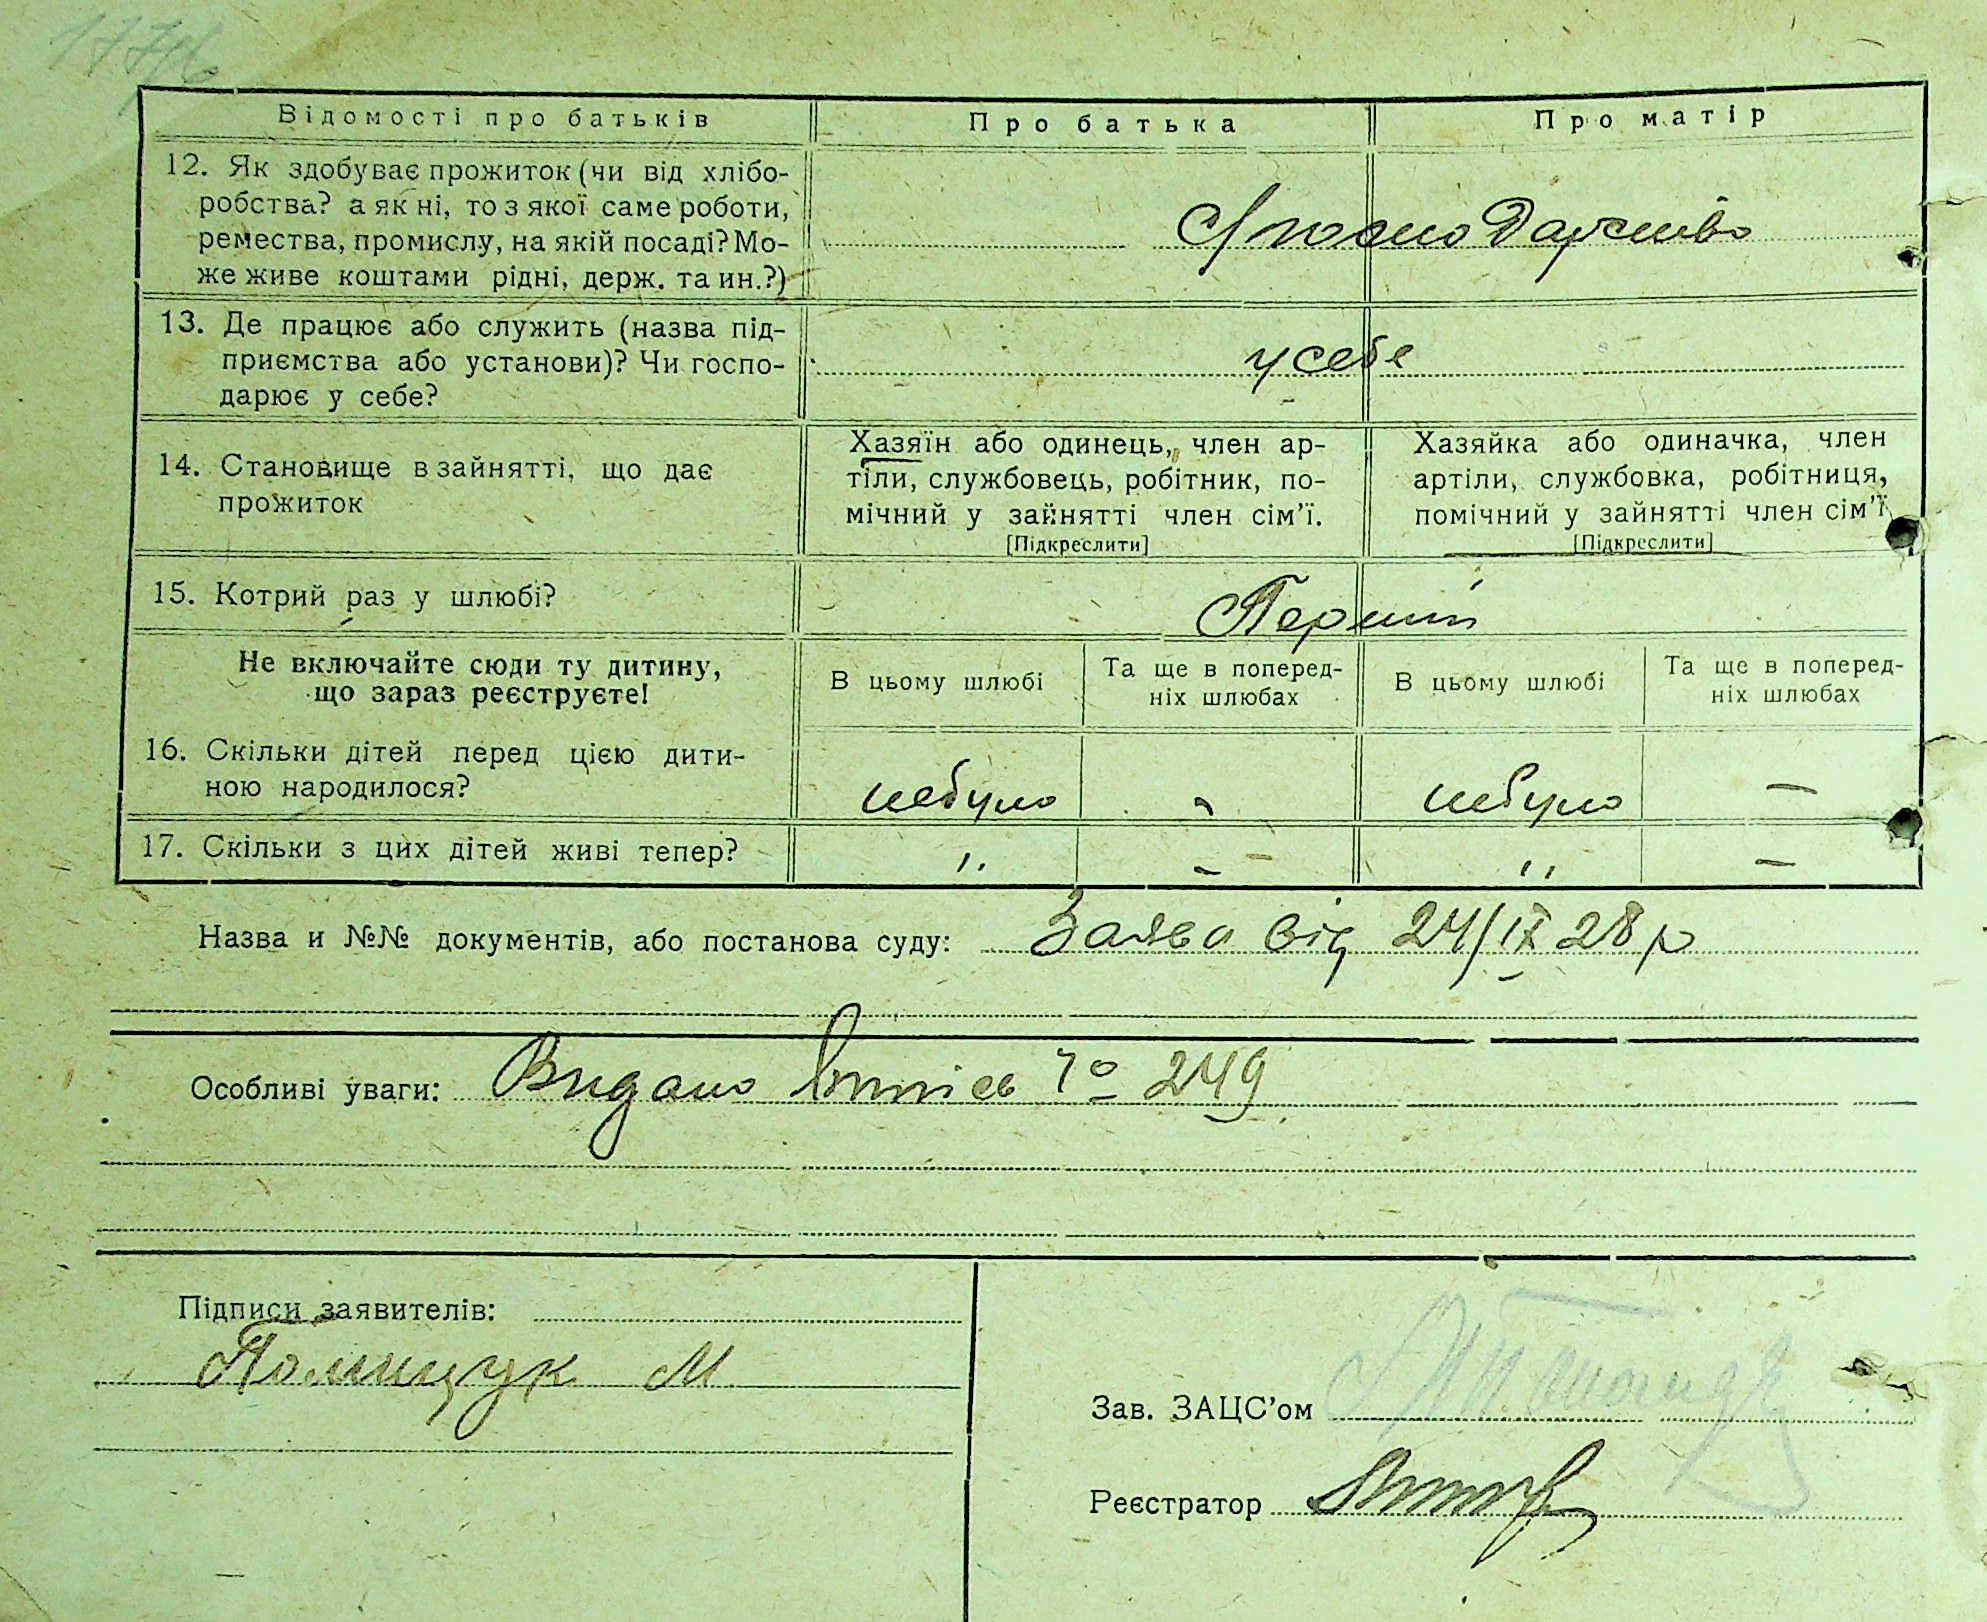 Відомості про батьків
Про батька
Про матір
12. Як здобуває прожиток (чи від хлібо-
робства? а як ні, то з якої саме роботи,
ремества, промислу, на якій посаді? Мо-
же живе коштами рідні, держ. та ин.?)
Господарство
13. Де працює або служить (назва під-
приємства або установи)? Чи госпо-
дарює у себе?
у себе
14. Становище в зайнятті, що дає
прожиток
Хазяїн або одинець, член ар-
тіли, службовець, робітник, по-
мічний у зайнятті член сім'ї.
[Підкреслити]
Хазяйка або одиначка, член
артіли, службовка, робітниця,
помічний у зайнятті член сім'ї
[Підкреслити]
15. Котрий раз у шлюбі?
Перший
Не включайте сюди ту дитину,
що зараз реєструєте!
В цьому шлюбі
Та ще в поперед-
ніх шлюбах
В цьому шлюбі
Та ще в поперед-
ніх шлюбах
16. Скільки дітей перед цією дити-
ною народилося?
небуло
-
небуло
-
17. Скільки з цих дітей живі тепер?
"
-
"
-
Назва и №№ документів, або постанова суду: Заява від 24/IX 28 р
Особливі уваги: Видано випись № 249
Підписи заявителів:
Поліщук М
Зав. ЗАЦС'ом
Реєстратор